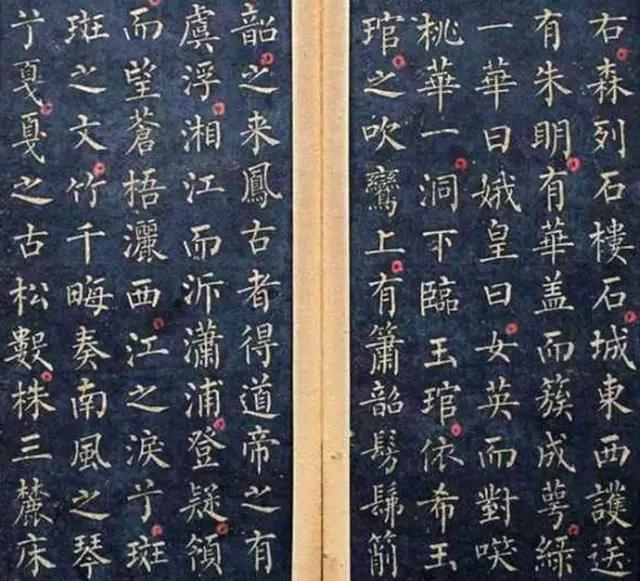 右森列石樓石城東西護送
有朱明有華盖而簇成萼綠
一華曰娥皇曰女英而對
桃華一洞下臨玉琯依希玉
琯之吹鸞上有簫韶髣髴箾
韶之来鳳古者得道帝之有
虞浮湘江而泝瀟浦登疑領
而望蒼梧灑西江之淚于斑
斑之文竹千晦奏南風之琴
于戛戛之古松數株三麓床